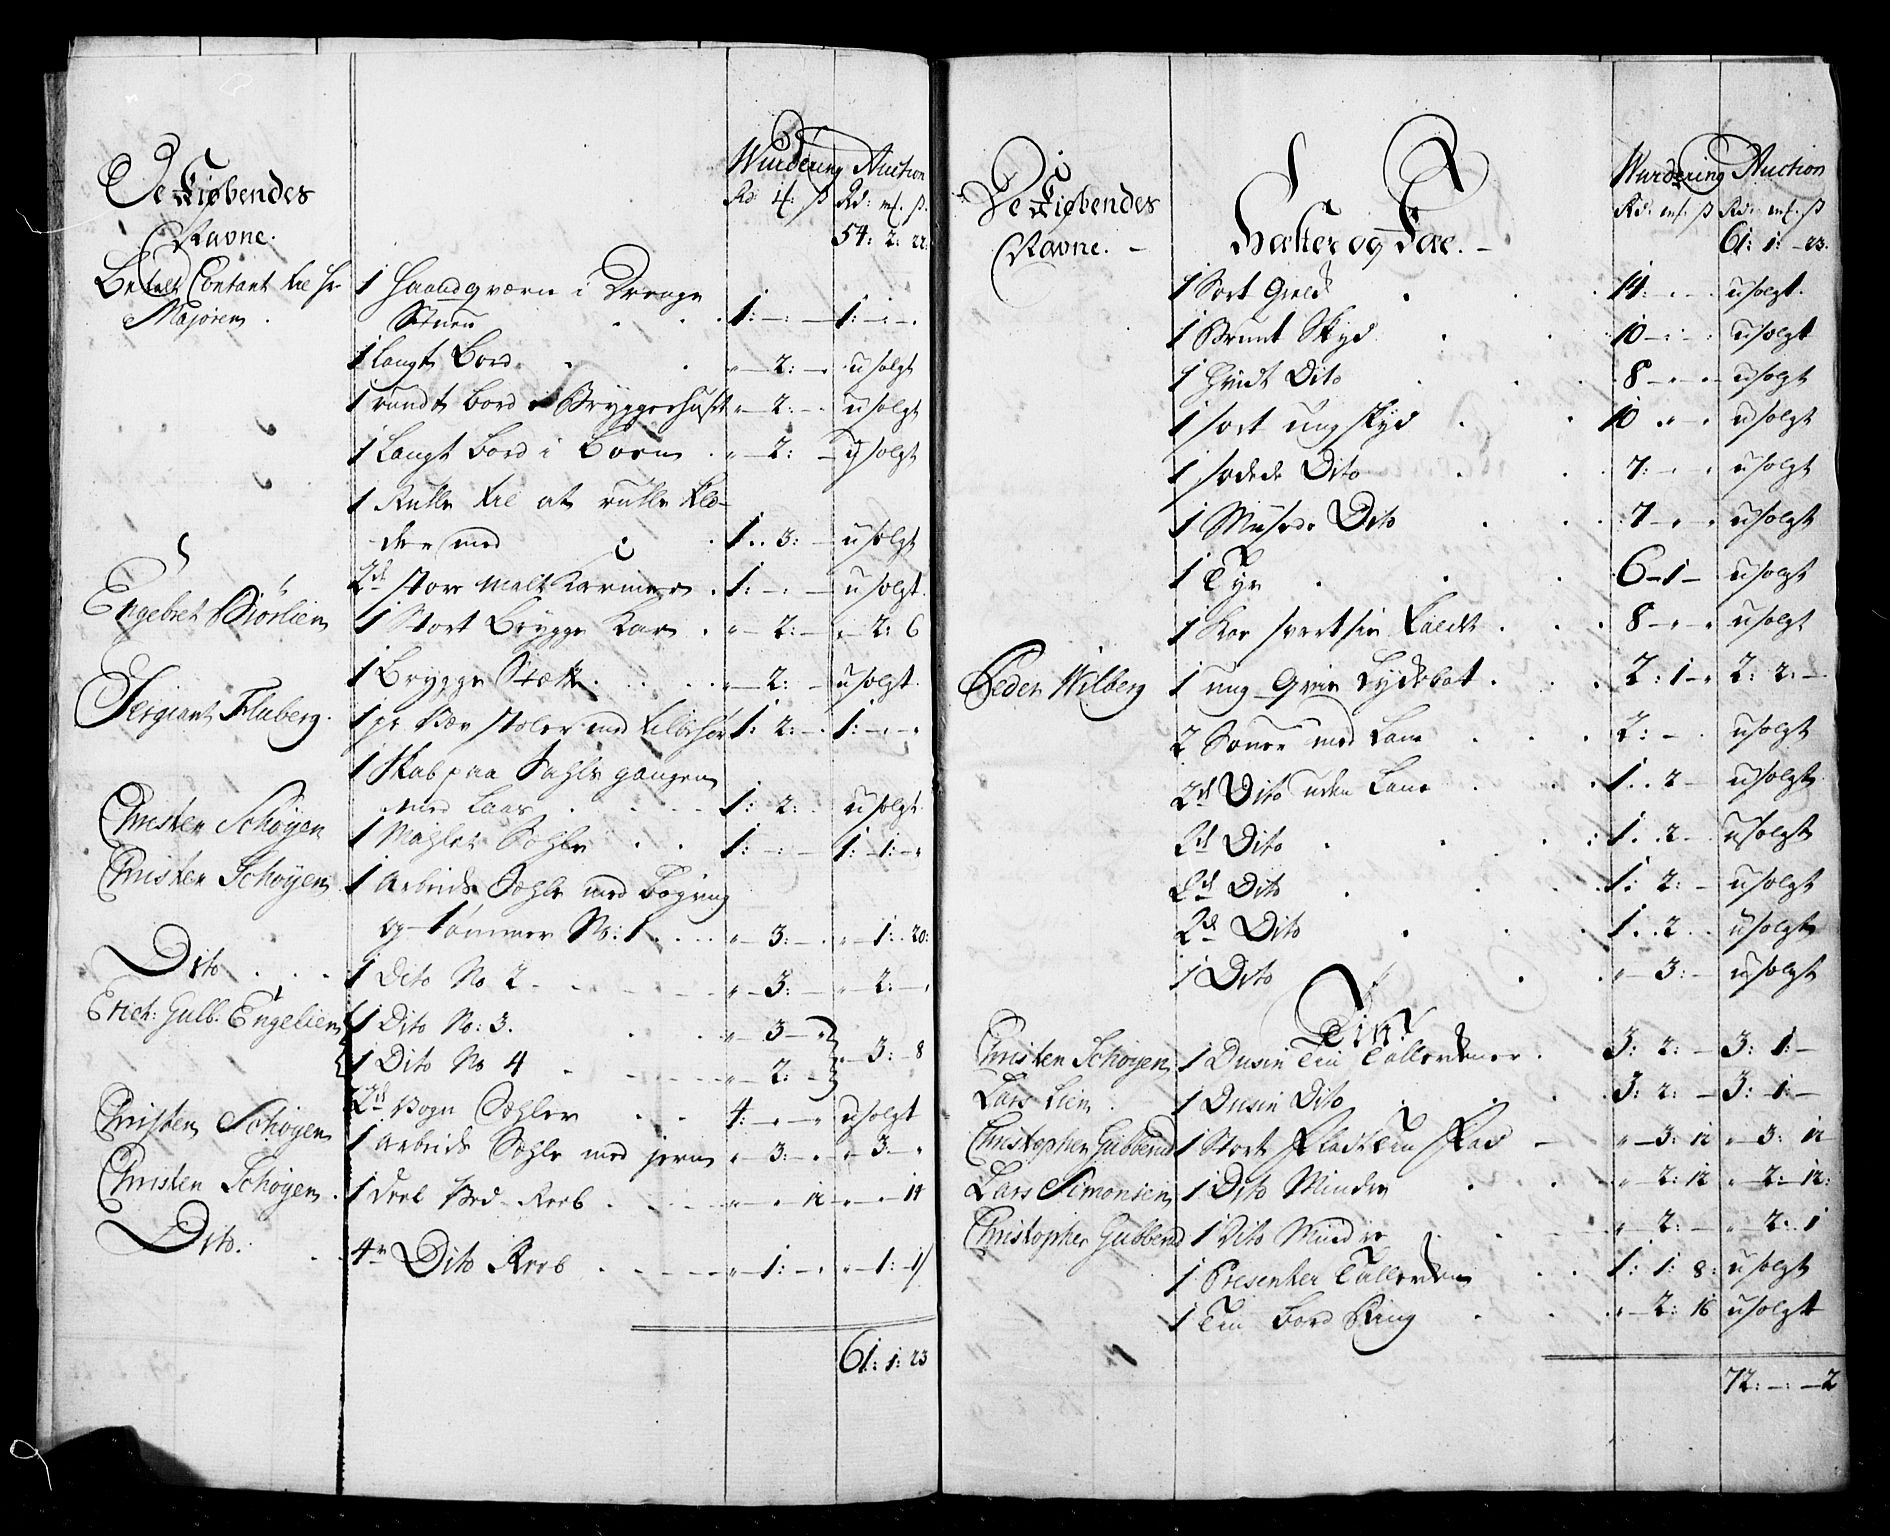 De Kiøbendes
Navne.
Wurdering Auction
Rd: mf: ß Rd: mf: ß.
54: 2: 22:
Betalt Contant til Hr 1 Haandqværn i Drenge
Majoren. Stuen 1: 1:
1 Langt Bord 2: usolgt
1 rundt Bord i Bryggerhuset 2: usolgt
1 Langt Bord i Born 2: usolgt
1 Rulle til at rulle Klæ-
der med 1.. 3: usolgt
2de store Malt Karmer 1: usolgt.
Engebret Biørlien 1 Stort Brygge Kar 2: 2: 6
1 Brygge 2: usolgt.
Sergiant Fluberg. 1 pr Væv stoler med tilbehør 1: 2: 1:
1 Skab paa Sahls gangen
med Laas 1: 2: usolgt
Christen Schøyen 1 1: 1: 1:
Christen Schøyen 1 Arbeids Sehle med Bogring
og tømmer No: 1. 3: 1: 20:
Dito 1 Dito No 2 3: 2:
Erich: Gulb. Engelien 1 Dito No: 3. 3
1 Dito No 4 2: 3: 8
2de Vogn Sehler 4: usolgt
Christen Schøyen 1 Arbeids Sehle med jern 3: 3:
Christen Schøyen. 1 Reeb 12 14
Dito. 4re Dito Reeb 1: 1: 1
61: 1: 23
De Kiøbendes
Navne.
Hæster og Fæe.
Wurdering Auction
Rd: mf: ß Rd: mf: ß
61: 1: 23.
1 Sort 14: usolgt.
1 Bruunt Skyd 10 usolgt
1 Hvidt Dito 8 usolgt
1 sort ung skyd 10 usolgt
1 Dito 7: usolgt
1 Dito 7 usolgt
1 Tyr 6 1 usolgt
1 Koe 8 usolgt
Peder Wilberg 1 ung Qvie 2: 1 2: 2:
2 med Lam 2: usolgt
2de Dito uden Lam 1.. 2 usolgt
2de Dito 1.. 2 usolgt
2de Dito 1: 2: usolgt
2de Dito 1.. 2 usolgt
1 Dito 3: usolgt
Tin
Christen Schøyen 1 Dusin Tin Tallerkener 3: 2: 3: 1:
Lars Lien 1 Dusin Dito 3: 2: 3: 1:
Christopher Gubberud 1 Stort Fladt Tin Fad 3: 12 3: 12
Lars Simonsen 1 Dito Mindre 2: 12 2: 12:
Christopher Gubberud 1 Dito Mindre 2: 2: 1
1 Presenter Tallerken 1: 1: 8: usolgt
1 Tin Bord Ring 2: 16 usolgt
72: 2